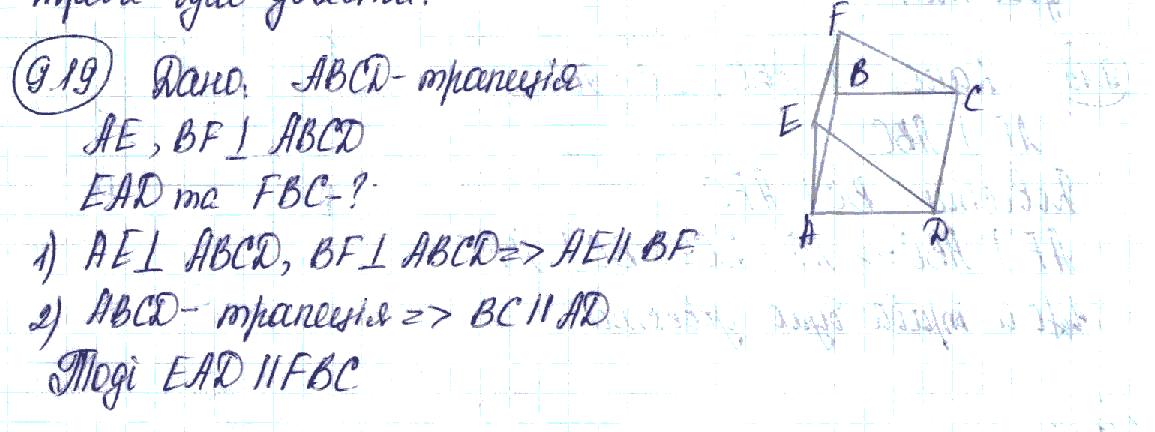 треба було довести.
919 Дано: ABCD - трапеція
AE, BF ⊥ ABCD
EAD та FBC - ?
1) AE ⊥ ABCD, BF ⊥ ABCD => AE || BF
2) ABCD - трапеція => BC || AD
Тоді EAD || FBC
F
B
C
E
A
D